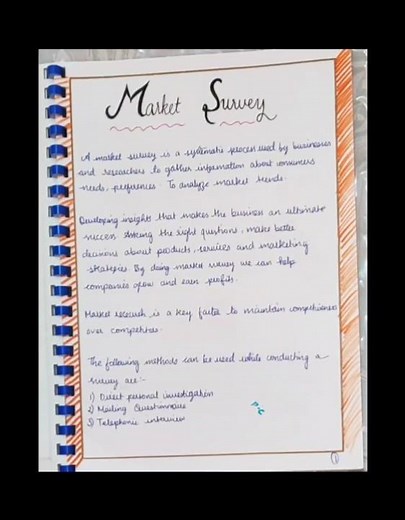 Market Survey
A market survey is a systematic process used by businesses
and researches to gather information about consumers
needs, preferences. To analyze market trends.
Developing insights that makes the business an ultimate
success. Asking the right questions, make better
decisions about products, services and marketing
strategies. By doing market survey we can help
companies grow and earn profits.
Market research is a key factor to maintain competitiveness
over competitors.
The following methods can be used while conducting a
survey are :-
1) Direct personal investigation
2) Mailing Questionnaire
3) Telephonic interview
1